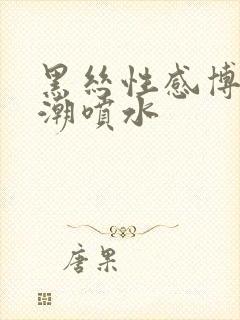 黑丝性感博
潮喷水
唐果